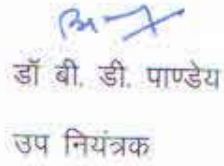 डॉ बी. डी. पाण्डेय
उप नियंत्रक